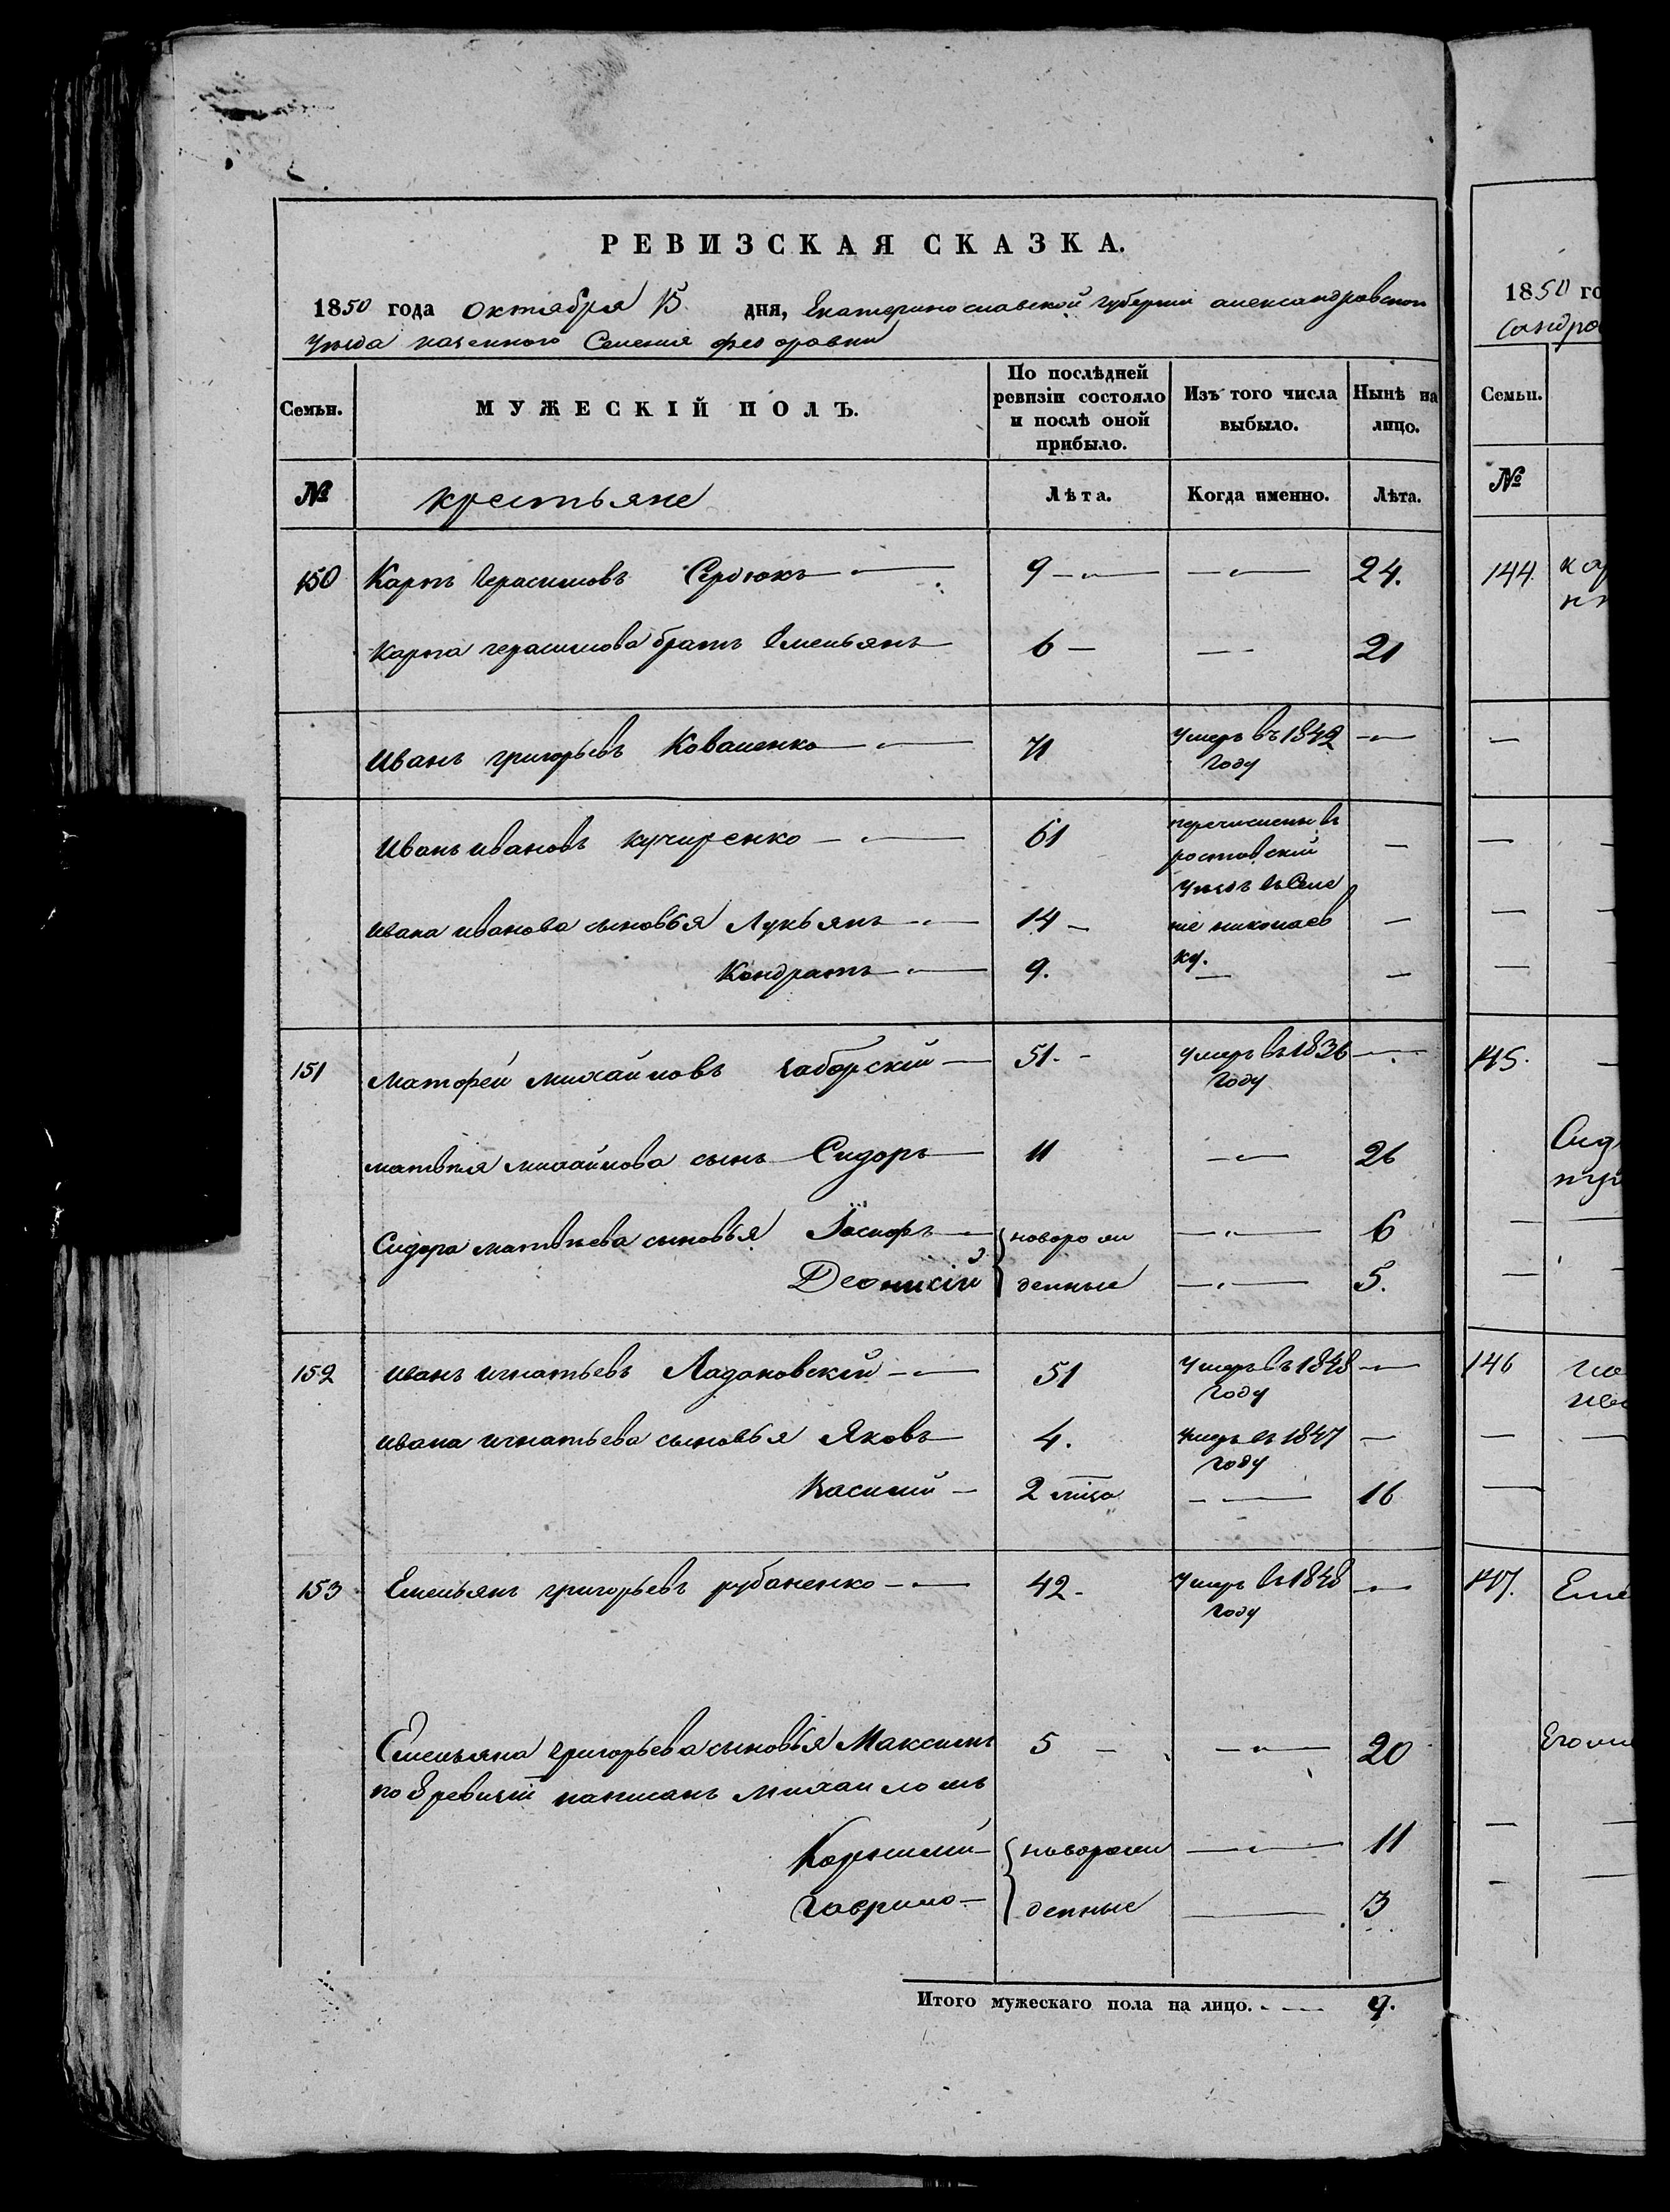 РЕВИЗСКАЯ СКАЗКА.
1850 года октября 15 дня, Екатеринославской губернии александровскои
уѣзда казенного Селения федоровки
Семьи. МУЖЕСКІЙ ПОЛЪ. По послѣдней ревизіи состояло и послѣ оной прибыло. Изъ того числа выбыло. Нынѣ на лицо.
№ крестьяне Лѣта. Когда именно. Лѣта.
150 Карпъ Герасимовъ Сердюкъ 9 24.
Карпа герасимова братъ Емельянъ 6 21
Иванъ григорьевъ Коваленко 71 умеръ въ 1842
году
Иванъ ивановъ кучиренко 61 перечисленъ въ
ростовскій
уѣздъ въ Селе
ивана иванова сыновья Лукьянъ 14 ніе николаев
ку.
Кондратъ 9.
151 матфей михайловъ заборскій 51. умеръ въ 1836
году
матвѣя михайлова сынъ Сидоръ 11 26
Сидора матвѣева сыновья Іосифъ новорож 6
Деонисій денные 5.
152 иванъ игнатьевъ Ладановскій 51 умеръ въ 1848
году
ивана игнатьева сыновья Яковъ 4. умеръ въ 1847
году
Василий 2 мѣца 16
153 Емельянъ григорьевъ рубаненко 42 умеръ въ 1848
году
Емельяна григорьева сыновья Максимъ 5 20
по 8 ревизіи написанъ михаиломъ
Корнилий новорож 11
гаврило денные 3
Итого мужескаго пола на лицо. 9.
1850 го
Семьи.
№
144.
145.
Сид
146
147. Еме